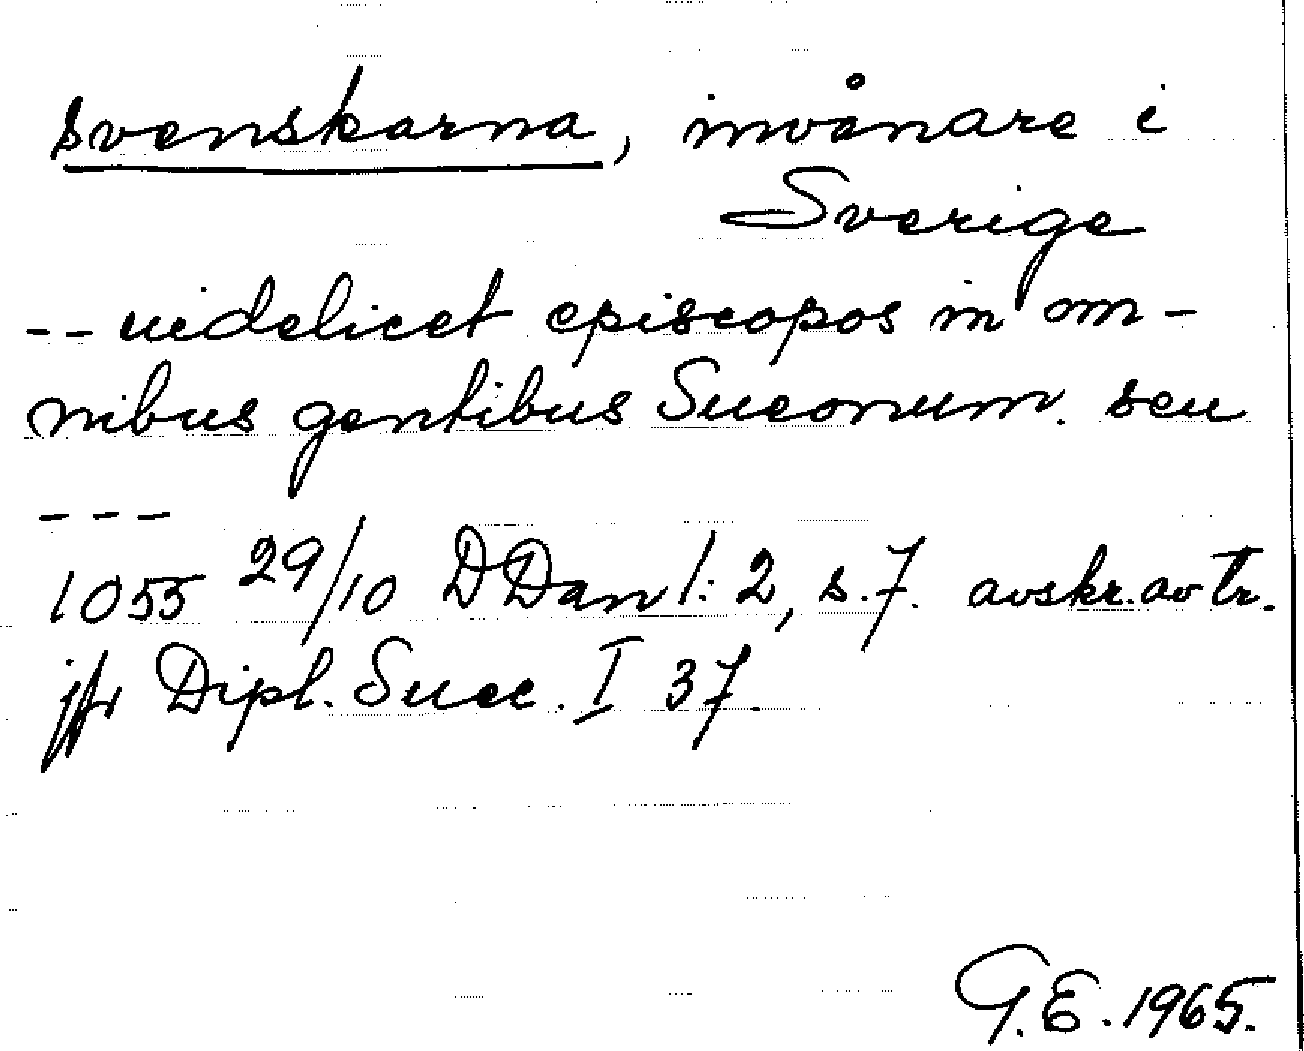 svenskarna, invånare i
Sverige
-- uidelicet episcopos in om-
nibus gentibus Sueonum. seu
---
1055 29/10 DDan 1:2, s.7. avskr. av tr.
jfr Dipl. Suec. I 37.
G.E. 1965.